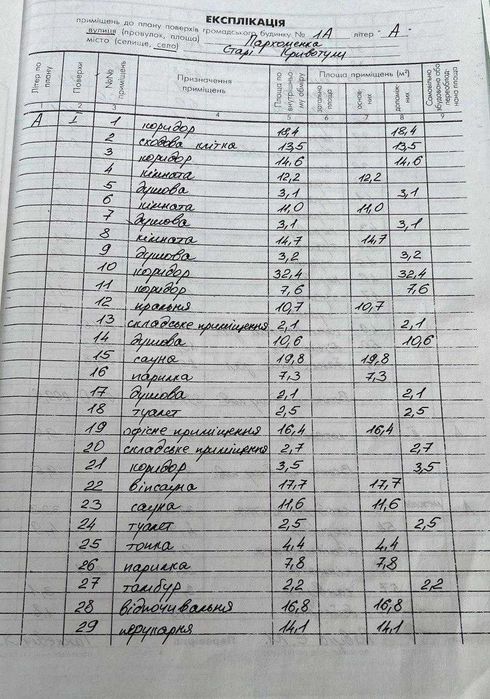 ЕКСПЛІКАЦІЯ
приміщень до плану поверхів громадського будинку № 1А літер "А"
вулиця (провулок, площа) Пархоменка
місто (селище, село) Старі Кривотули
Літер по плану | Поверхи | №№ приміщень | Призначення приміщень | Площа по внутрішньому обміру | Площа приміщень (м²) | Самовільно збудована або переобладнана площа
загальна площа | основних | допоміжних
1 | 2 | 3 | 4 | 5 | 6 | 7 | 8 | 9
А 1 1 коридор 18,4 18,4
2 сходова клітка 13,5 13,5
3 коридор 14,6 14,6
4 кімната 12,2 12,2
5 душова 3,1 3,1
6 кімната 11,0 11,0
7 душова 3,1 3,1
8 кімната 14,7 14,7
9 душова 3,2 3,2
10 коридор 32,4 32,4
11 коридор 7,6 7,6
12 пральня 10,7 10,7
13 складське приміщення 2,1 2,1
14 душова 10,6 10,6
15 сауна 19,8 19,8
16 парилка 7,3 7,3
17 душова 2,1 2,1
18 туалет 2,5 2,5
19 офісне приміщення 16,4 16,4
20 складське приміщення 2,7 2,7
21 коридор 3,5 3,5
22 віпсауна 17,7 17,7
23 сауна 11,6 11,6
24 туалет 2,5 2,5
25 топка 4,4 4,4
26 парилка 7,8 7,8
27 тамбур 2,2 2,2
28 відпочивальня 16,8 16,8
29 перукарня 14,1 14,1